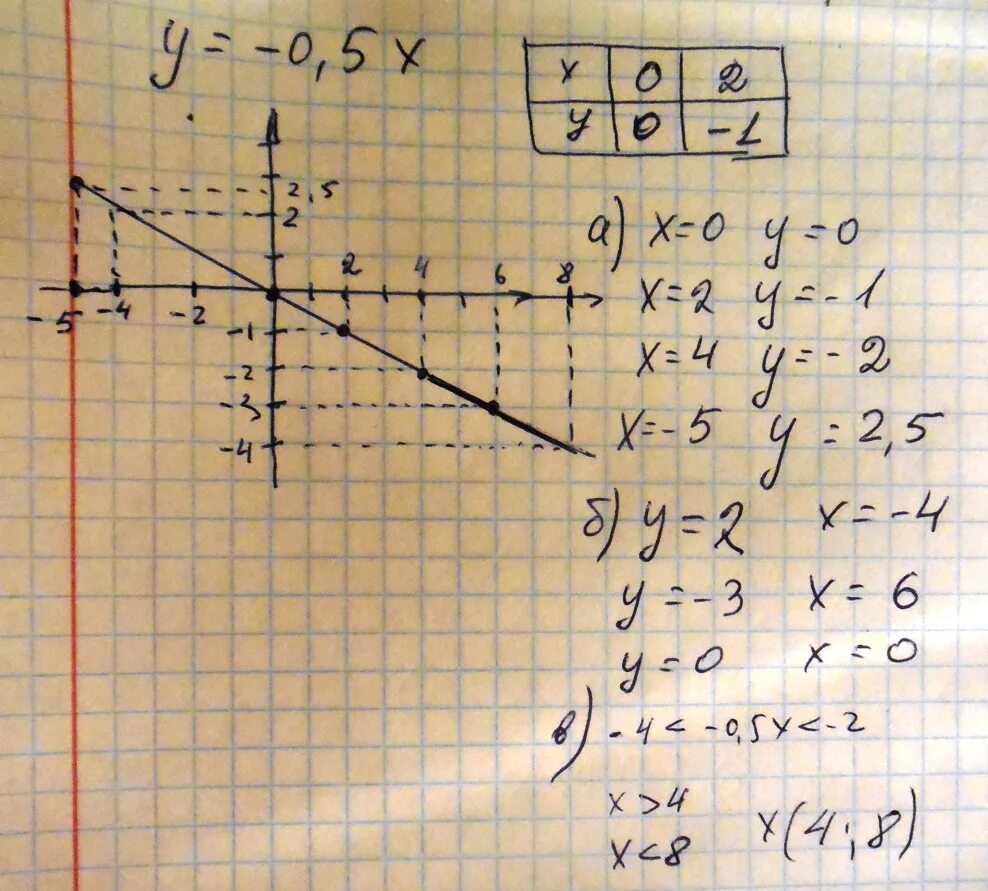 y = -0,5 x
x 0 2
y 0 -1
2,5
2
2 4 6 8
-5 -4 -2
-1
-2
-3
-4
а) x=0 y=0
x=2 y=-1
x=4 y=-2
x=-5 y=2,5
б) y=2 x=-4
y=-3 x=6
y=0 x=0
в) -4<-0,5x<-2
x>4
x<8 x(4;8)